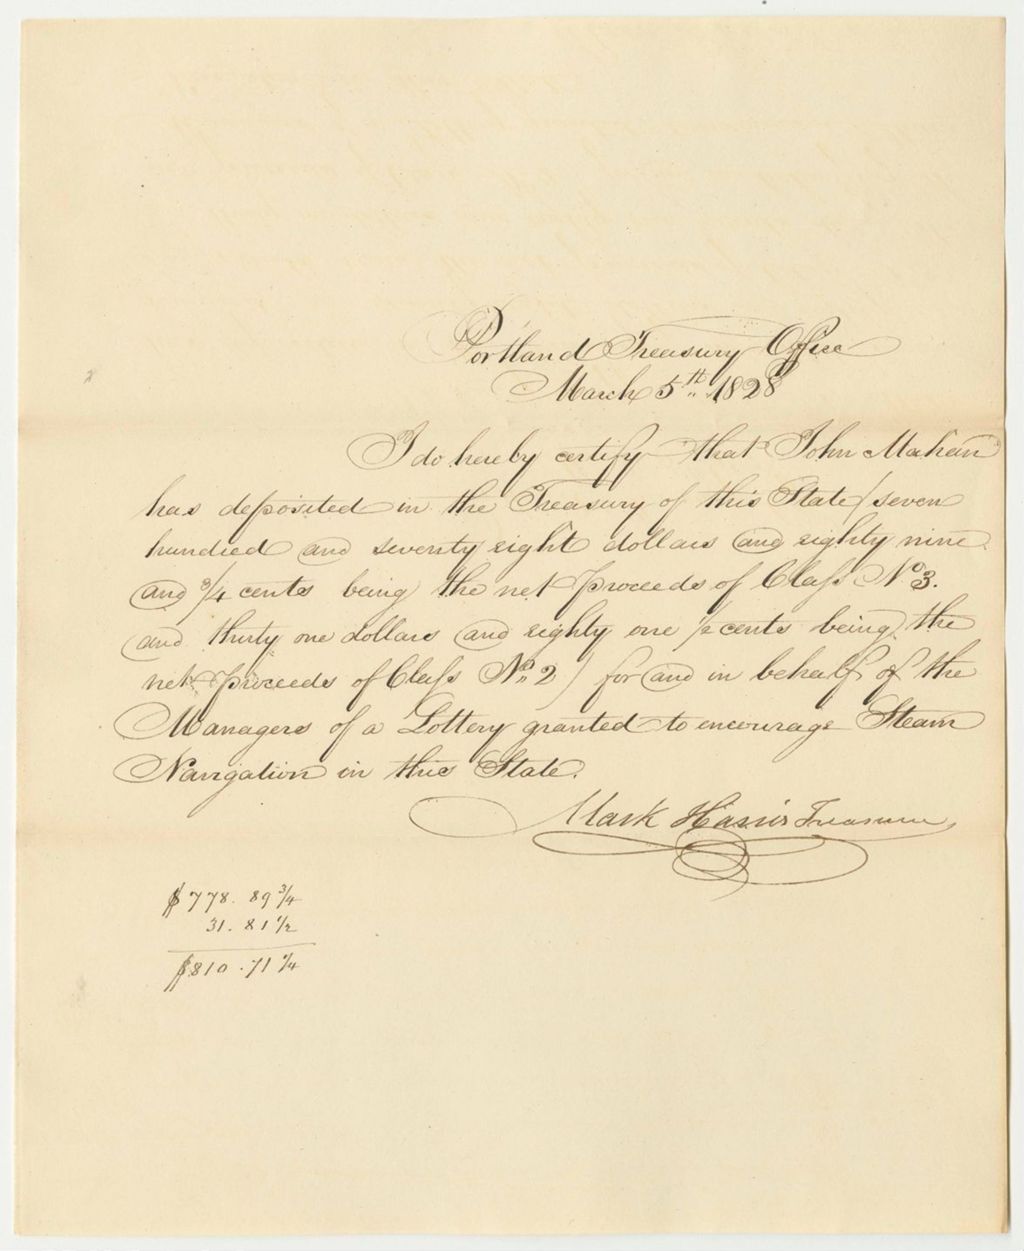 Portland Treasury Office
March 5th 1828
I do hereby certify that John Mahan
has deposited in the Treasury of this State (seven
hundred and seventy eight dollars and eighty nine
and 3/4 cents being the net proceeds of Class No 3.
and thirty one dollars and eighty one 1/2 cents being the
net proceeds of Class No 2) for and in behalf of the
Managers of a Lottery granted to encourage Steam
Navigation in this State.
Mark Harris Treasurer
$778.89 3/4
31.81 1/2
$810.71 1/4